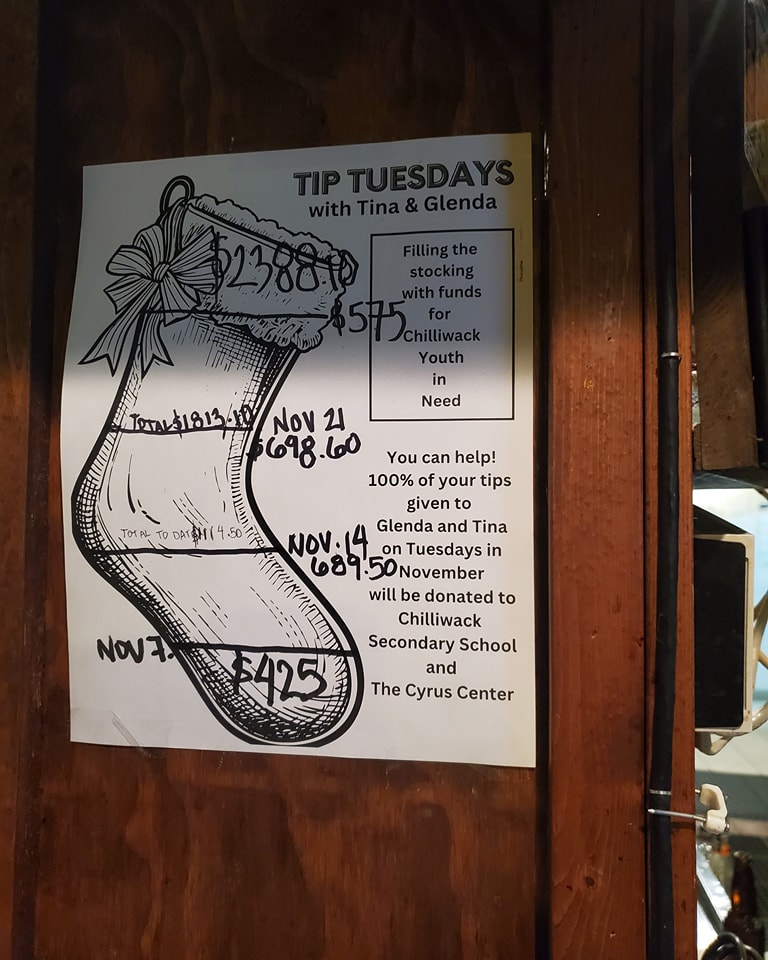 TIP TUESDAYS
with Tina & Glenda
$2388.10
$575
Filling the
stocking
with funds
for
Chilliwack
Youth
in
Need
TOTAL $1813.10
NOV 21
$698.60
You can help!
100% of your tips
given to
Glenda and Tina
on Tuesdays in
November
will be donated to
Chilliwack
Secondary School
and
The Cyrus Center
TOTAL TO DATE $1114.50
NOV. 14
689.50
NOV 7.
$425